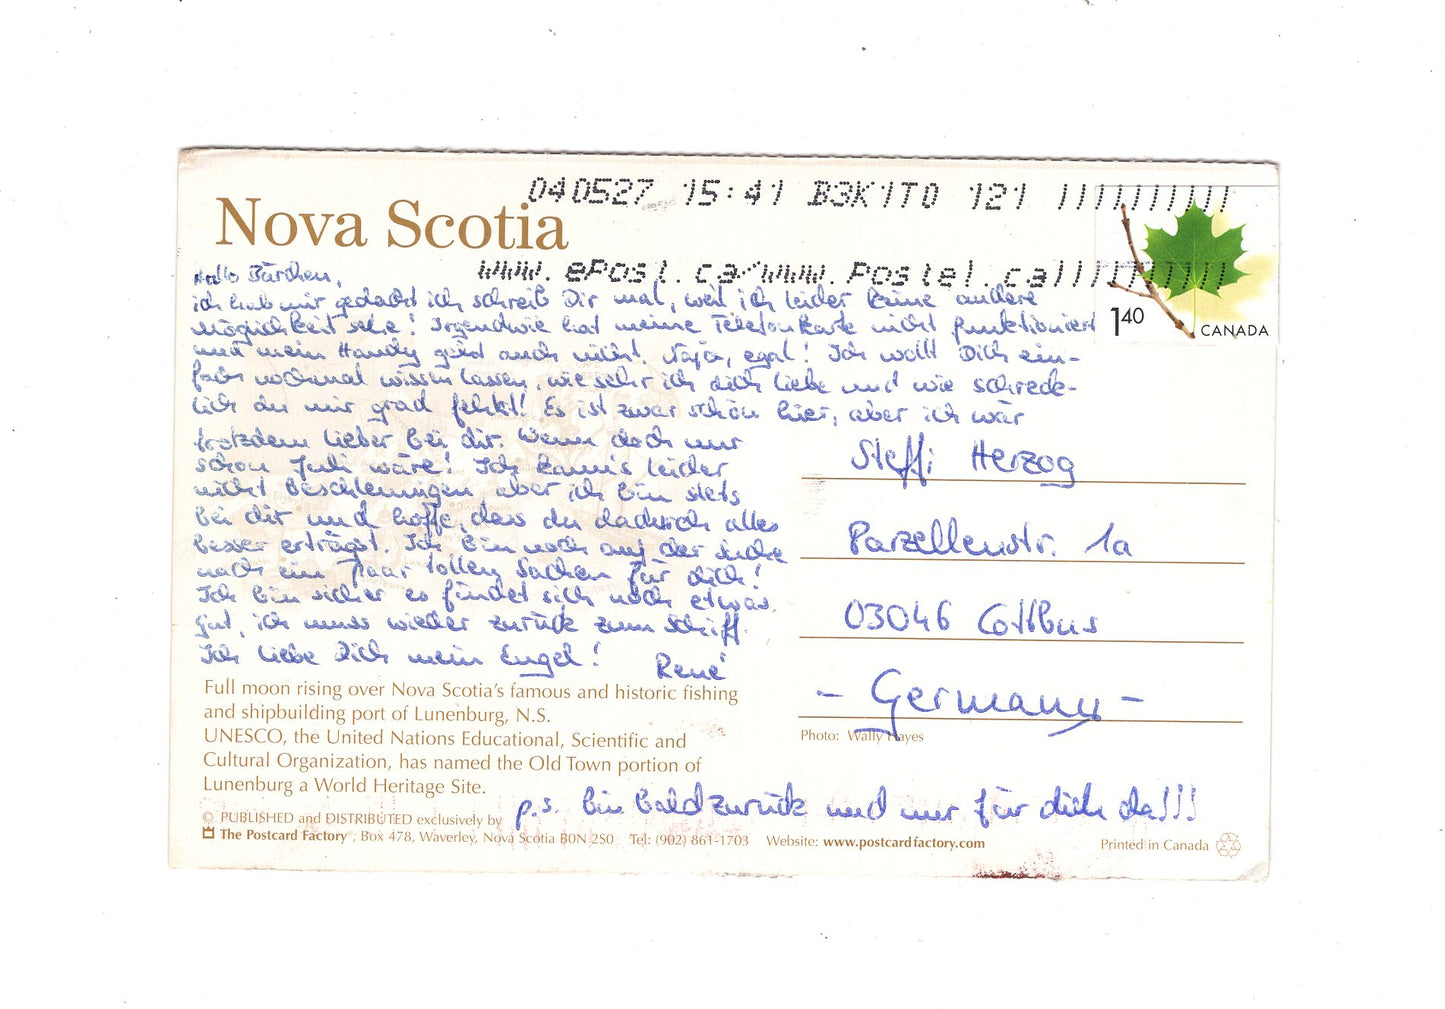 Nova Scotia
040527 15:41 B3K1T0 121
www.ePost.ca/www.Postel.ca
140
CANADA
Hallo Bärchen,
ich hab mir gedacht ich schreib Dir mal, weil ich leider keine andere
möglichkeit sehe! Irgendwie hat meine Telefonkarte nicht funktioniert
und mein Handy geht auch nicht. Naja, egal! Ich wollt Dich ein-
fach nochmal wissen lassen, wie sehr ich dich liebe und wie schreck-
lich du mir grad fehlst! Es ist zwar schön hier, aber ich wär
trotzdem lieber bei dir. Wenn doch nur
schon Juli wäre! Ich kann's leider
nicht beschleunigen aber ich bin stets
bei dir und hoffe, dass du dadurch alles
besser erträgst. Ich bin noch auf der suche
nach ein paar tollen Sachen für dich!
Ich bin sicher es findet sich noch etwas.
Gut, ich muss wieder zurück zum Schiff.
Ich liebe Dich mein Engel!
René
Steffi Herzog
Parzellenstr. 1a
03046 Cottbus
- Germany -
Full moon rising over Nova Scotia's famous and historic fishing
and shipbuilding port of Lunenburg, N.S.
UNESCO, the United Nations Educational, Scientific and
Cultural Organization, has named the Old Town portion of
Lunenburg a World Heritage Site.
Photo: Wally Hayes
p.s. bin bald zurück und nur für dich da!!!
© PUBLISHED and DISTRIBUTED exclusively by
The Postcard Factory, Box 478, Waverley, Nova Scotia B0N 2S0 Tel: (902) 861-1703 Website: www.postcardfactory.com
Printed in Canada